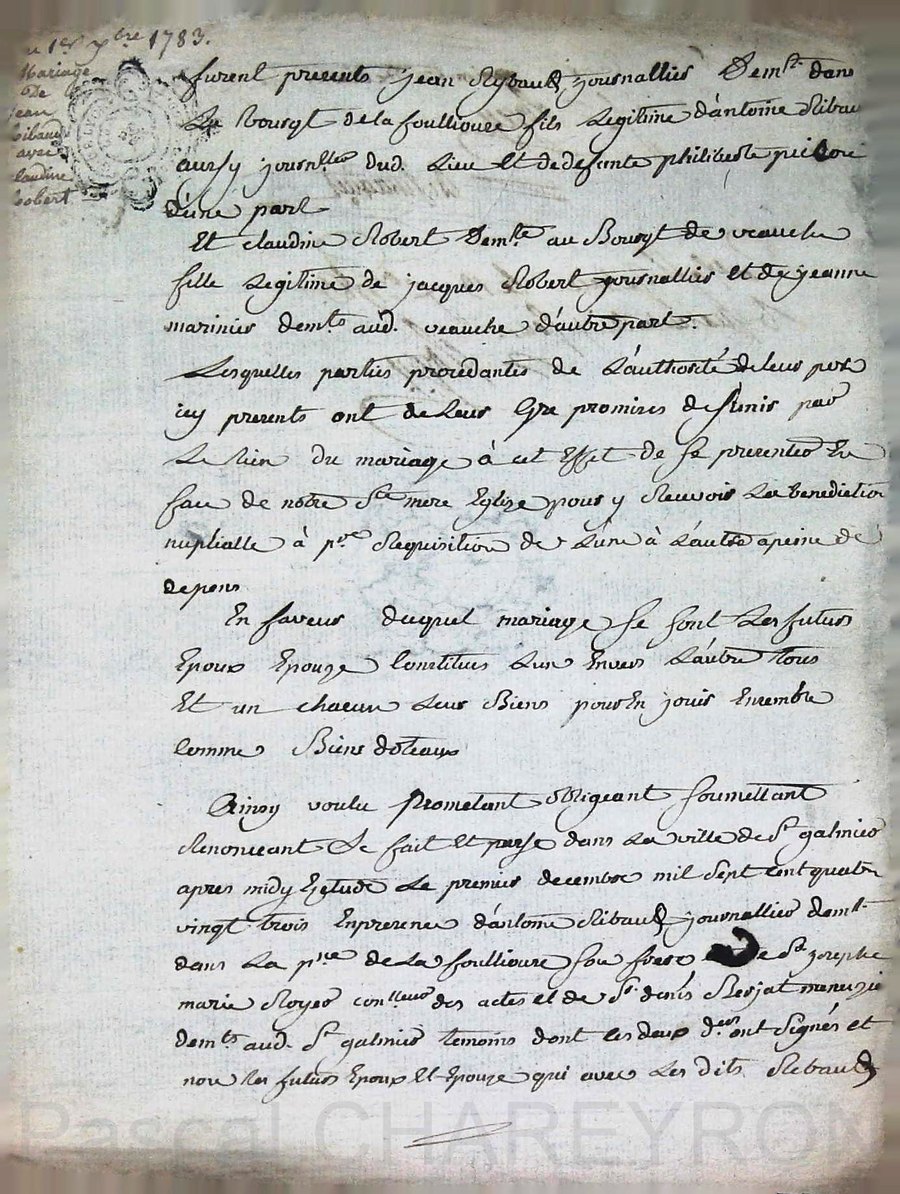 1er Xbre 1783.
Mariage
De
Jean
Ribaud
avec
claudine
Robert
furent presents jean Ribaud journallier Demt. dans
Le Bourgt de la foulliouze fils Legitime d'antoine Ribaud
aussy journlier dud. Lieu et de defunte philiberte
d'une part
Et claudine Robert Demte au Bourgt de veauche
fille Legitime de jacques Robert journallier et de jeanne
marinier demts aud. veauche d'autre part.
Lesquelles parties procedantes de L'authorité de leur pere
icy presents ont de Leur Gre promires de s'unir par
Le lien du mariage à cet Effet de se presenter En
face de notre Ste mere Eglize pour y Recevoir La benediction
nuptialle à pre Requisition de L'une à L'autre a peine de
depens
En faveur duquel mariage se sont Les futurs
Epoux Epouze Constitues L'un Envers L'autre tous
Et un chacun Leur Biens pour En jouir Ensemble
Comme Biens doteaux
Ainsy voulu Prometant obligeant soumettant
Renonceant &c fait et passe dans La ville de St galmier
apres midy Etude Le premier decembre mil sept cent quatre
vingt trois En presence d'antoine Ribaud journallier demt.
dans La psse de La foulliouze son frere de Sr. josephe
marie Royer conlleur des actes et de Sr. denis Berjat menuzie
demts aud. St galmier temoins dont les deux ders ont signés et
non les futurs Epoux et Epouze qui avec Les dits Ribaud
Pascal CHAREYRON